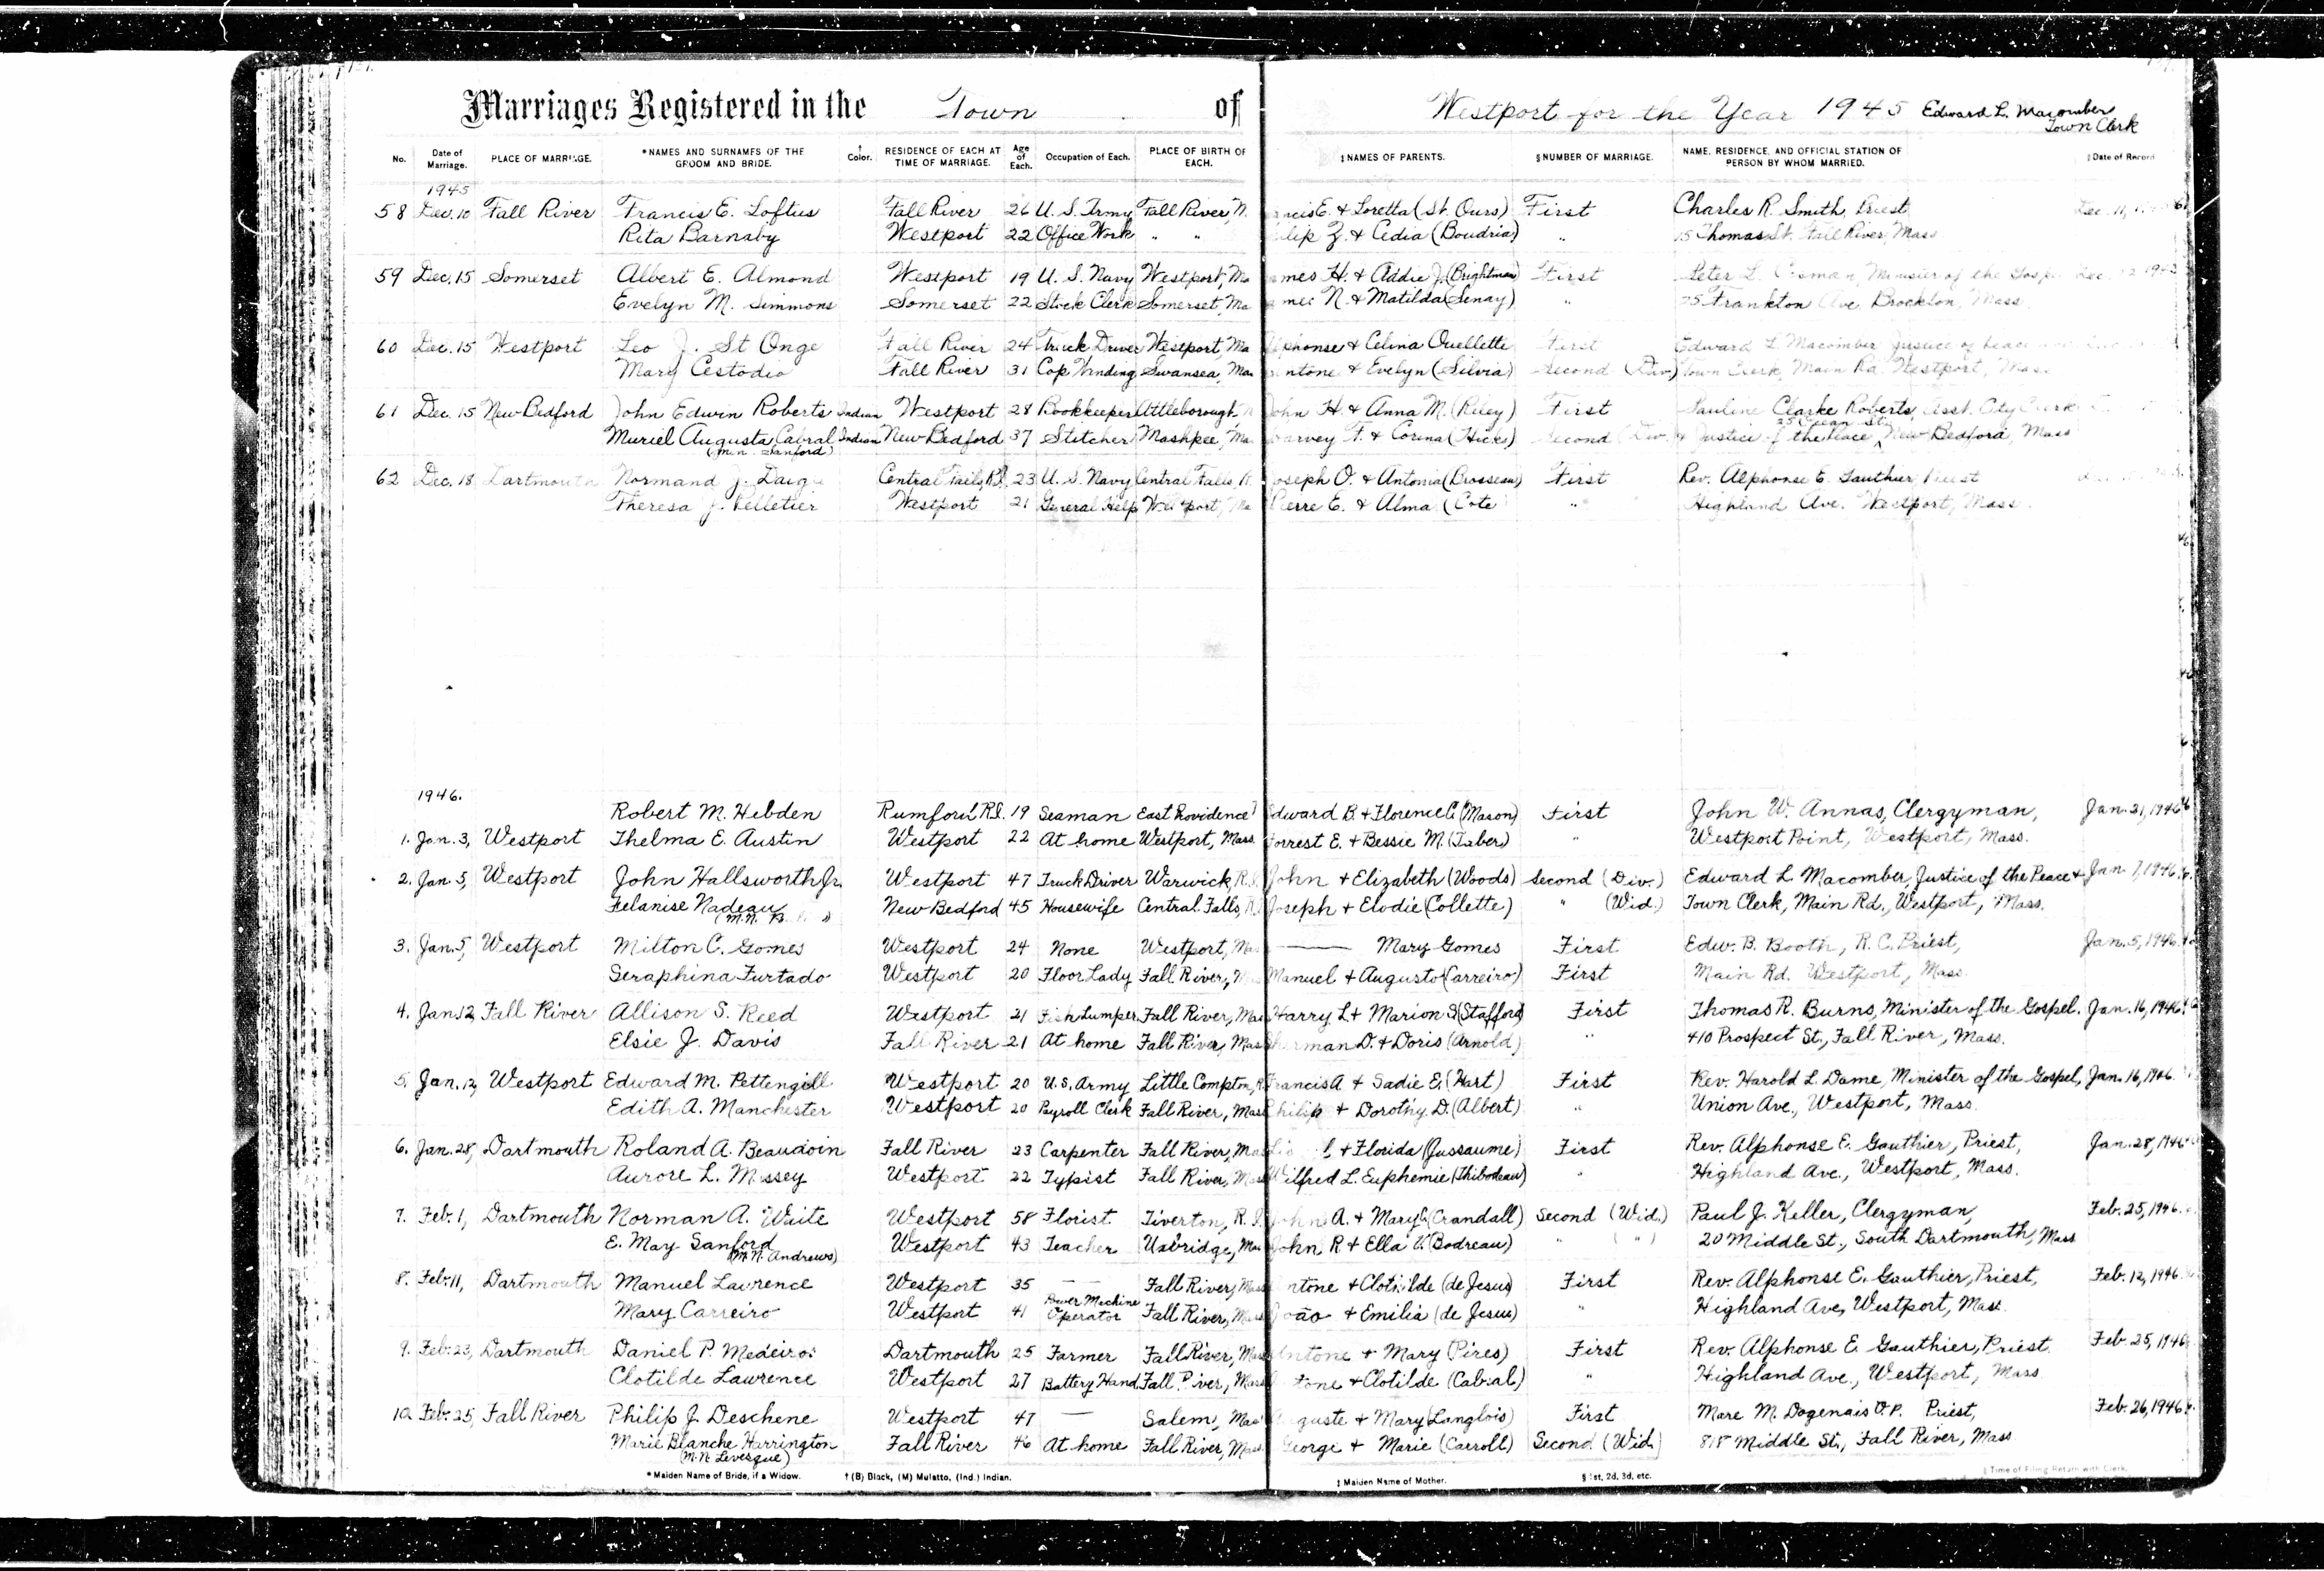 Marriages Registered in the Town of Westport for the Year 1945 Edward L. Macomber
Town Clerk
No. Date of Marriage. PLACE OF MARRIAGE. *NAMES AND SURNAMES OF THE GROOM AND BRIDE. † Color. RESIDENCE OF EACH AT TIME OF MARRIAGE. Age of Each. Occupation of Each. PLACE OF BIRTH OF EACH. ‡NAMES OF PARENTS. §NUMBER OF MARRIAGE. NAME, RESIDENCE, AND OFFICIAL STATION OF PERSON BY WHOM MARRIED. ‖Date of Record
1945
58 Dec. 10 Fall River Francis E. Loftus Fall River 26 U. S. Army Fall River, E. & Loretta (St. Ours) First Charles R. Smith, Priest Dec. 11,
Rita Barnaby Westport 22 Office Work " " Z. & Cedia (Boudria) " 15 Thomas St. Fall River, Mass
59 Dec. 15 Somerset Albert E. Almond Westport 19 U. S. Navy Westport, Ma mes H. & Addie J. (Brightman) First Peter L. Minister of the Gospe Dec.
Evelyn M. Simmons Somerset 22 Stock Clerk Somerset, Ma N. & Matilda (Senay) " 75 Frankton Ave Brockton, Mass
60 Dec. 15 Westport Leo J. St Onge Fall River 24 Truck Driver Westport Ma lphonse & Celina Ouellette First Edward L Macomber Justice of Peace
Mary Cestodio Fall River 31 Cop Winding Swansea, Mas ntone & Evelyn (Silvia) Second (Div.) Town Clerk, Main Rd. Westport, Mass.
61 Dec. 15 New Bedford John Edwin Roberts Indian Westport 28 Bookkeeper Attleborough John H. & Anna M. (Riley) First Pauline Clarke Roberts, Asst. City Clerk
25 Ocean St.
Muriel Augusta Cabral Indian New Bedford 37 Stitcher Mashpee, Ma arvey F. & Corina (Hicks) Second (Div. & Justice of the Peace, New Bedford, Mass
(m.n. Sanford)
62 Dec. 18 Dartmouth Normand J. Central Falls, R.I. 23 U. S. Navy Central Falls, R. oseph O. & Antonia (Brosseau) First Rev. Alphonse E. Gauthier, Priest
Theresa J. Pelletier Westport 21 General Help Westport, Ma Pierre E. & Alma (Cote " Highland Ave. Westport, Mass.
1946.
Robert M. Hebden Rumford R.I. 19 Seaman East Providence Edward B. + Florence C. (Mason) First John W. Annas, Clergyman, Jan. 21, 1946
1. Jan. 3, Westport Thelma E. Austin Westport 22 At home Westport, Mass. Forrest E. + Bessie M. (Taber) " Westport Point, Westport, Mass.
2. Jan. 5, Westport John Hallsworth Jr. Westport 47 Truck Driver Warwick, R.I. John + Elizabeth (Woods) Second (Div.) Edward L Macomber, Justice of the Peace + Jan. 7, 1946
Felanise Nadeau New Bedford 45 Housewife Central Falls, R.I. Joseph + Elodie (Collette) " (Wid.) Town Clerk, Main Rd., Westport, Mass.
3. Jan. 5, Westport Milton C. Gomes Westport 24 None Westport, Ma. —— Mary Gomes First Edw. B. Booth, R. C. Priest, Jan. 5, 1946
Seraphina Furtado Westport 20 Floor Lady Fall River, Manuel + Augusto (Carreiro) First Main Rd. Westport, Mass.
4. Jan. 12, Fall River Allison S. Reed Westport 21 Fish Lumper Fall River, Mas Harry L + Marion S. (Stafford) First Thomas R. Burns, Minister of the Gospel. Jan. 16, 1946
Elsie J. Davis Fall River 21 At home Fall River, Mass man D. + Doris (Arnold) " 410 Prospect St., Fall River, Mass.
5. Jan. 12, Westport Edward M. Pettengill Westport 20 U.S. Army Little Compton, R Francis A + Sadie E. (Hart) First Rev. Harold L. Dame, Minister of the Gospel, Jan. 16, 1946
Edith A. Manchester Westport 20 Payroll Clerk Fall River, Mass Philip + Dorothy D. (Albert) " Union Ave., Westport, Mass.
6. Jan. 28, Dartmouth Roland A. Beaudoin Fall River 23 Carpenter Fall River, Mas + Florida (Jussaume) First Rev. Alphonse E. Gauthier, Priest, Jan. 28, 1946
Aurore L. Massey Westport 22 Typist Fall River, Mass Wilfred L. Euphemie (Thibodeau) " Highland Ave., Westport, Mass.
7. Feb. 1, Dartmouth Norman A. Waite Westport 58 Florist Tiverton, R. I. John A. + Mary (Crandall) Second (Wid.) Paul J. Keller, Clergyman, Feb. 25, 1946
E. May Sanford Westport 43 Teacher Uxbridge, Mas John R + Ella V. (Bodreau) " ( " ) 20 Middle St., South Dartmouth, Mass
(M.N. Andrews)
8. Feb. 11, Dartmouth Manuel Lawrence Westport 35 —— Fall River, Mass ntone + Clotilde (de Jesus) First Rev. Alphonse E. Gauthier, Priest, Feb. 12, 1946
Mary Carreiro Westport 41 Power Machine Operator Fall River, Mass João + Emilia (de Jesus) " Highland Ave, Westport, Mass.
9. Feb. 23, Dartmouth Daniel P. Medeiros Dartmouth 25 Farmer Fall River, Mass Antone + Mary (Pires) First Rev. Alphonse E. Gauthier, Priest. Feb. 25, 1946
Clotilde Lawrence Westport 27 Battery Hand Fall River, Mass tone + Clotilde (Cabral) " Highland Ave., Westport, Mass
10. Feb. 25, Fall River Philip J. Deschene Westport 47 — Salem, Mas guste + Mary (Langlois) First Marc M. Dagenais O.P. Priest, Feb. 26, 1946
Marie Blanche Harrington Fall River 46 At home Fall River, Mass. George + Marie (Carroll) Second (Wid.) 818 Middle St., Fall River, Mass
(M.N. Levesque)
*Maiden Name of Bride, if a Widow. † (B) Black, (M) Mulatto, (Ind.) Indian. ‡ Maiden Name of Mother. § 1st, 2d, 3d, etc. ‖ Time of Filing Return with Clerk.